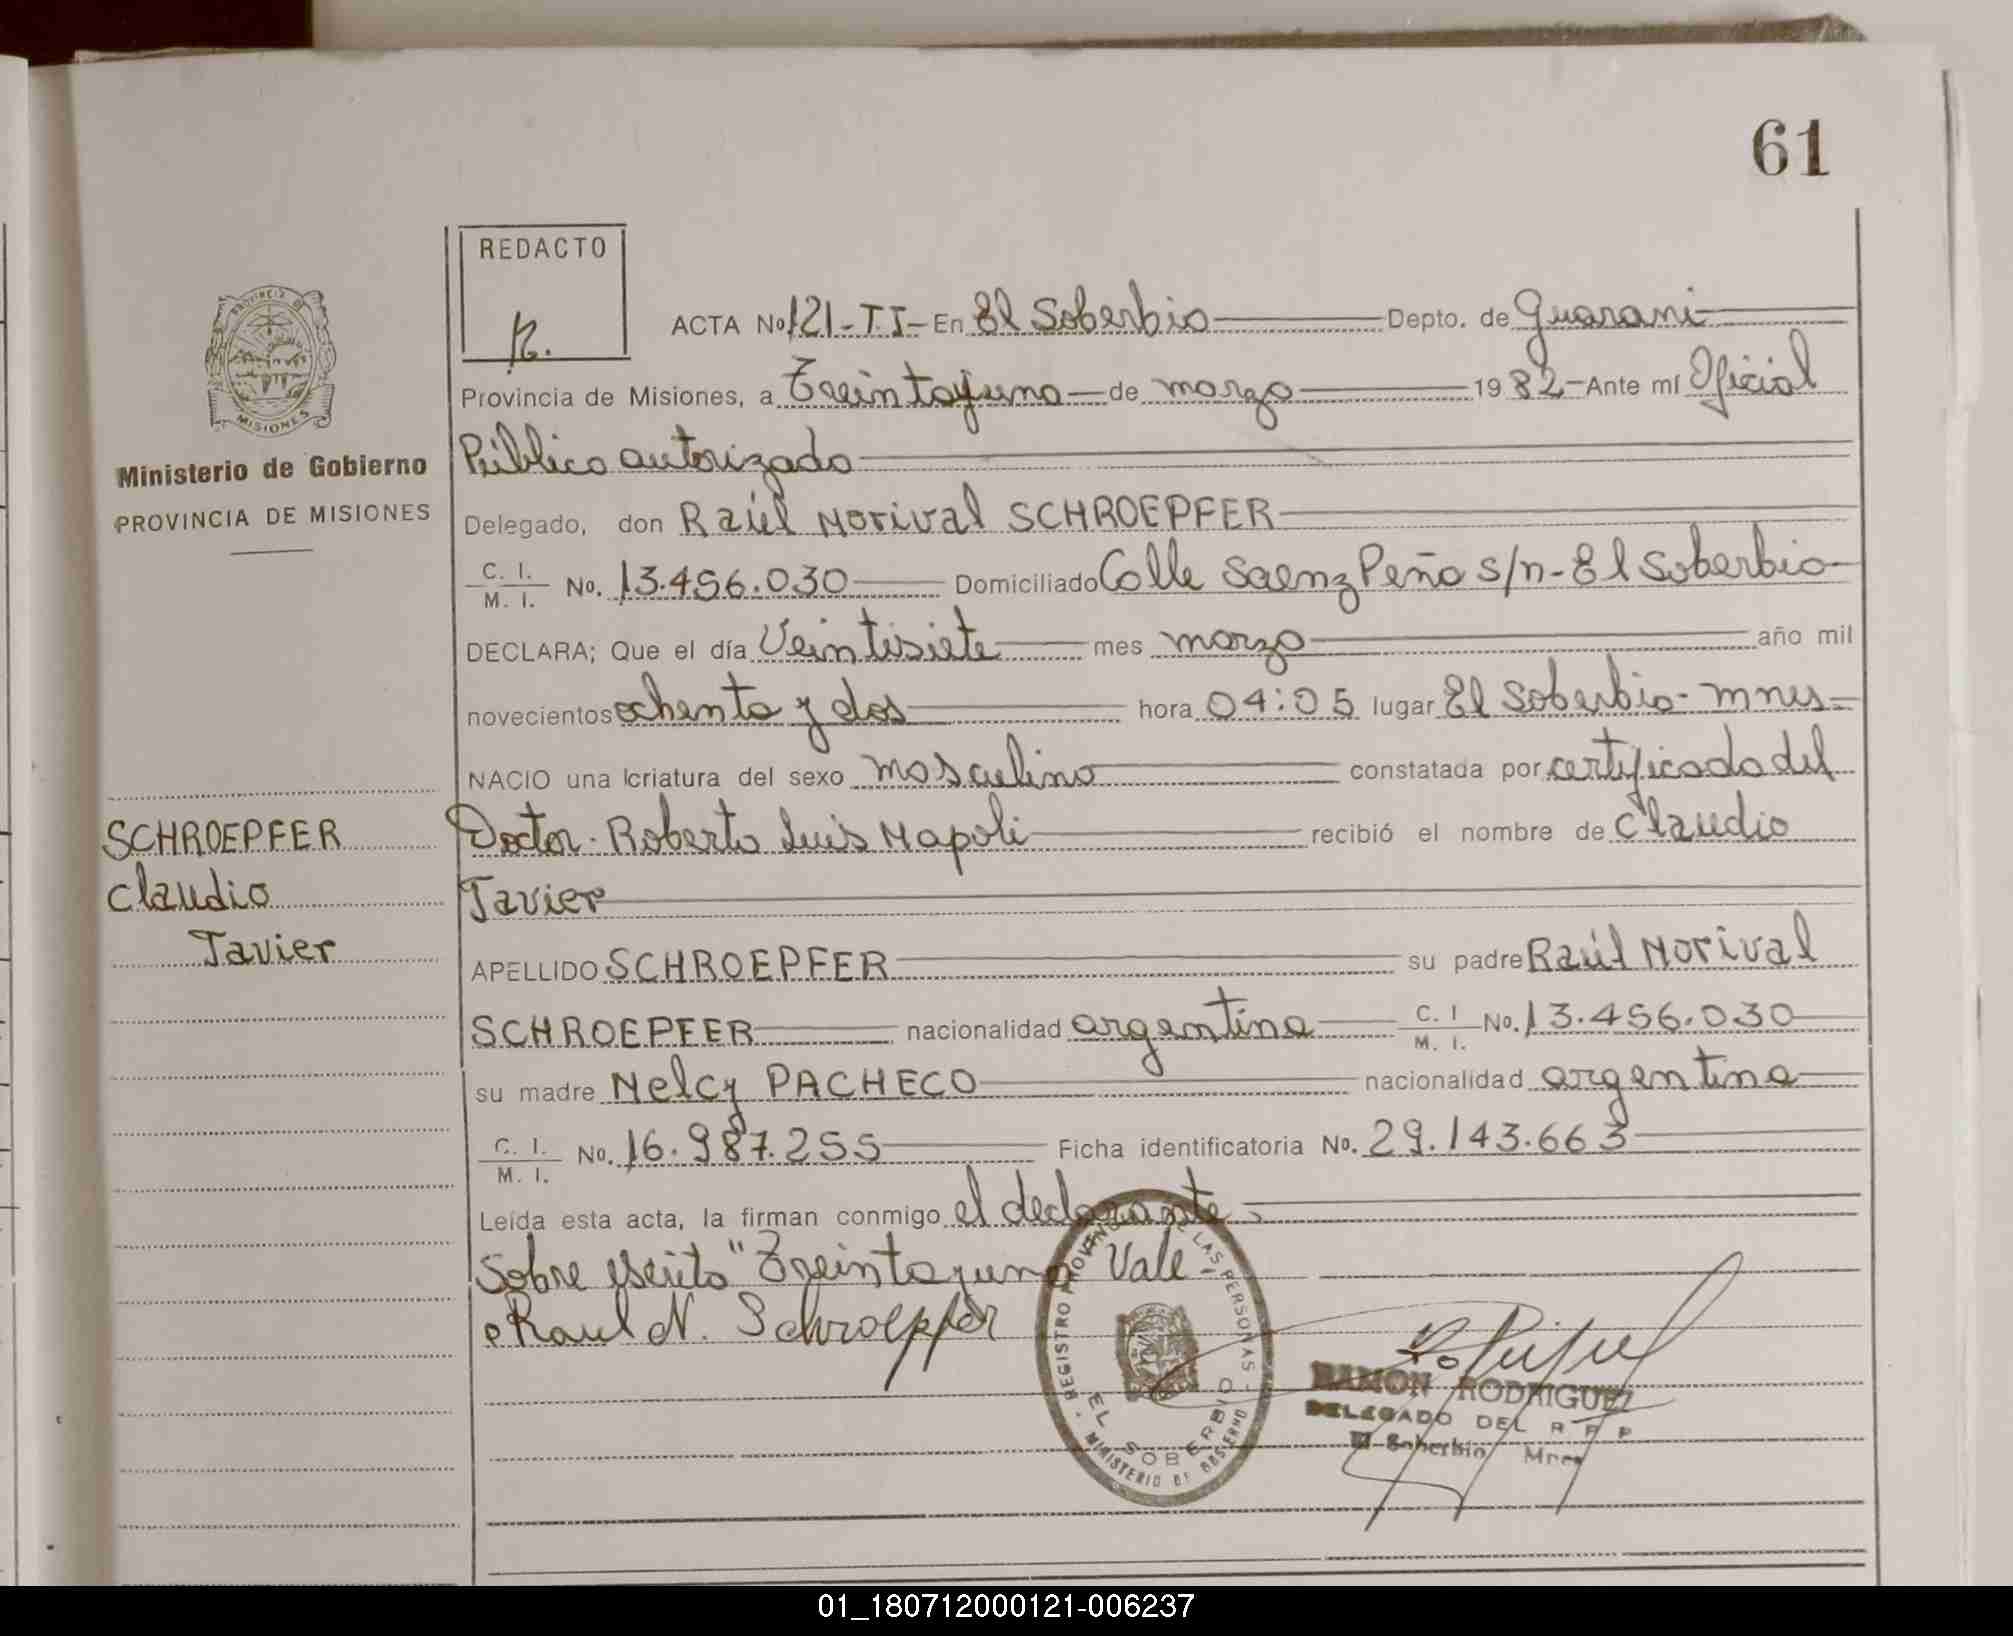 61
REDACTO
R.
ACTA No 121-TI- En El Soberbio Depto. de Guarani
Provincia de Misiones, a Treintayuno de marzo 1982- Ante mí Oficial
Público autorizado
Delegado, don Raúl Norival SCHROEPFER
C. I. / M. I. No. 13.456.030 Domiciliado Calle Saenz Peña s/n- El Soberbio
DECLARA; Que el día Veintisiete mes marzo año mil
novecientos ochenta y dos hora 04:05 lugar El Soberbio- Mnes-
NACIO una criatura del sexo masculino constatada por certificado del
Doctor. Roberto Luis Napoli recibió el nombre de Claudio
Javier
APELLIDO SCHROEPFER su padre Raúl Norival
SCHROEPFER nacionalidad argentina C. I / M. I. No. 13.456.030
su madre Nelcy PACHECO nacionalidad argentina
C. I. / M. I. No. 16.987.255 Ficha identificatoria No. 29.143.663
Leída esta acta, la firman conmigo el declarante.
Sobre escrito "Treintayuno Vale-
Raul N. Schroepfer
PROVINCIA DE
MISIONES
Ministerio de Gobierno
PROVINCIA DE MISIONES
SCHROEPFER
Claudio
Javier
REGISTRO PROVINCIAL DE LAS PERSONAS
EL SOBERBIO
MINISTERIO DE GOBIERNO
RAMON RODRIGUEZ
DELEGADO DEL R P P
El Soberbio Mnes
01_180712000121-006237